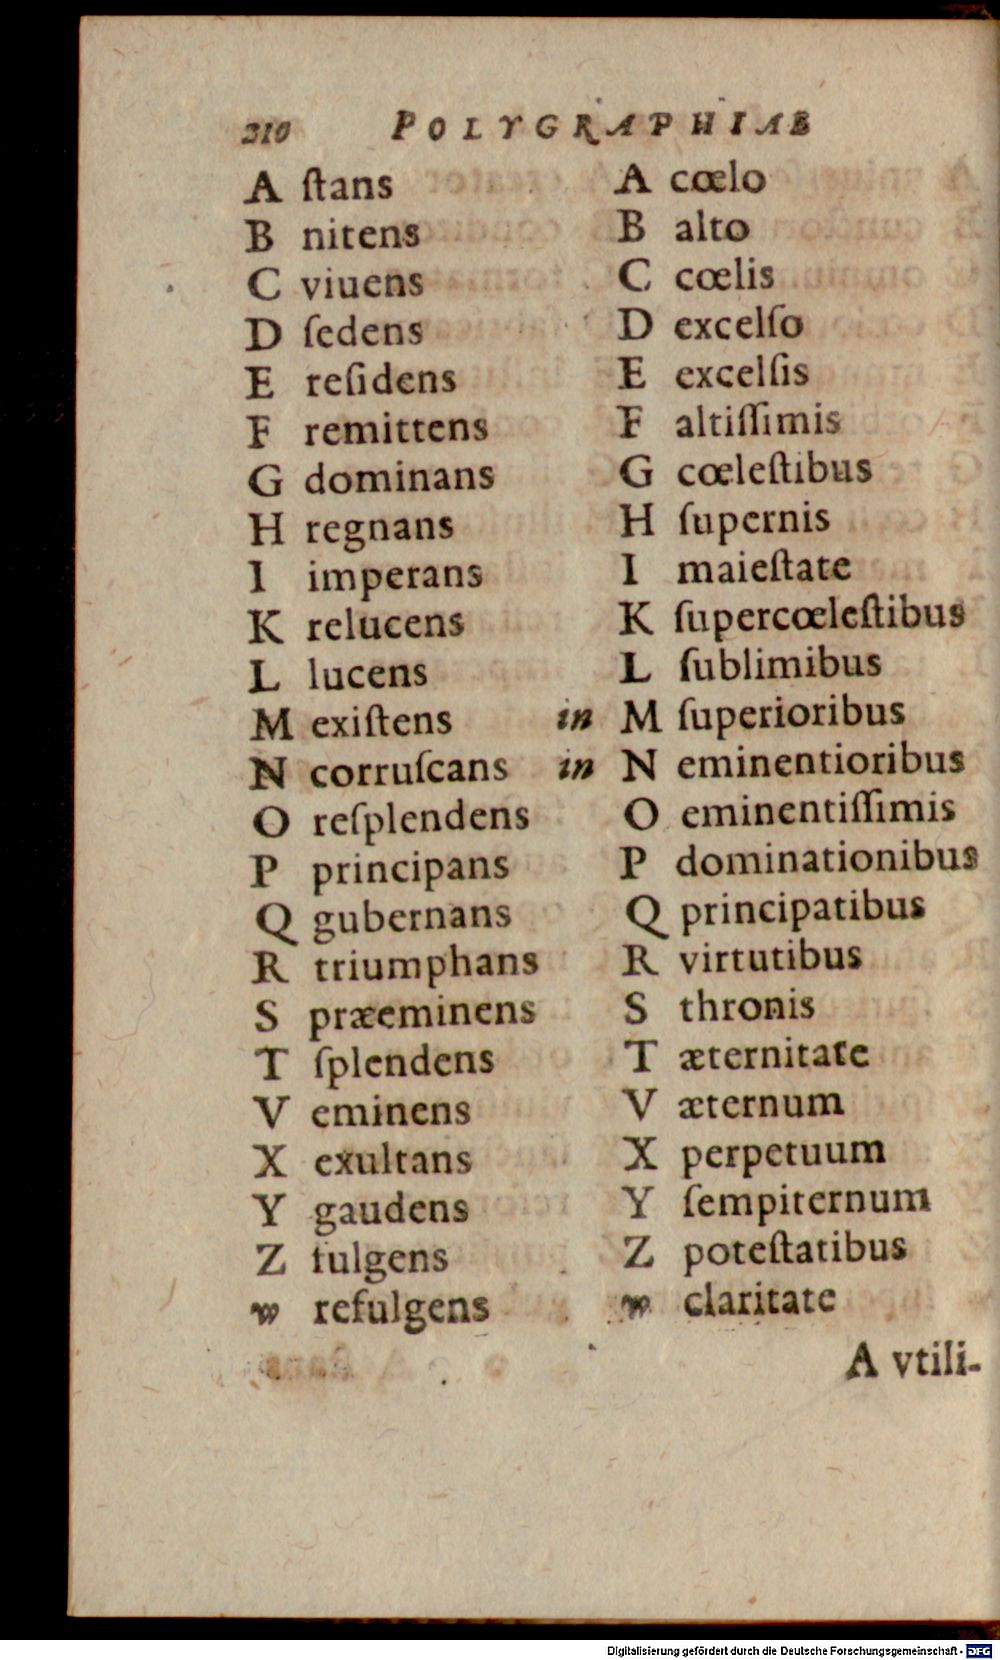 210 POLYGRAPHIAE
A ſtans A cœlo
B nitens B alto
C viuens C cœlis
D ſedens D excelſo
E reſidens E excelſis
F remittens F altiſſimis
G dominans G cœleſtibus
H regnans H ſupernis
I imperans I maieſtate
K relucens K ſupercœleſtibus
L lucens L ſublimibus
M exiſtens in M ſuperioribus
N corruſcans in N eminentioribus
O reſplendens O eminentiſſimis
P principans P dominationibus
Q gubernans Q principatibus
R triumphans R virtutibus
S præeminens S thronis
T ſplendens T æternitate
V eminens V æternum
X exultans X perpetuum
Y gaudens Y ſempiternum
Z fulgens Z poteſtatibus
w refulgens w claritate
A vtili-
Digitalisierung gefördert durch die Deutsche Forschungsgemeinschaft - DFG